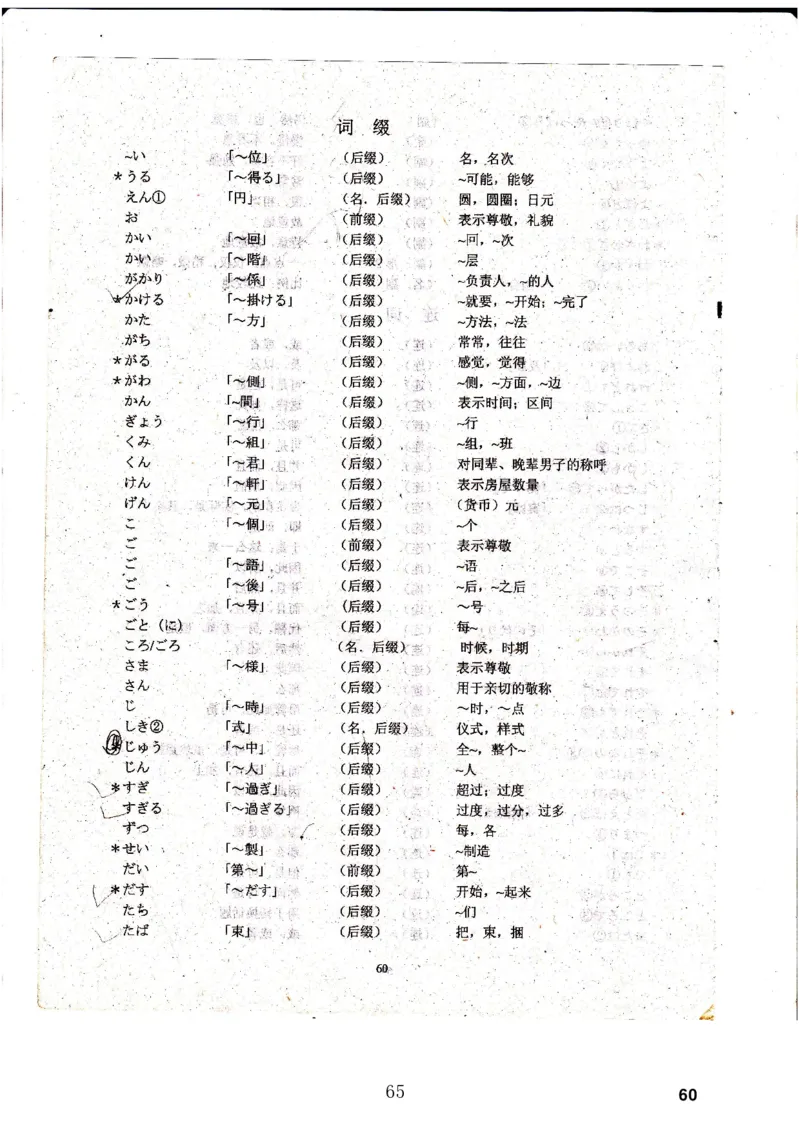 词 缀
~い 「~位」 （后缀） 名，名次
*うる 「~得る」 （后缀） ~可能，能够
えん① 「円」 （名．后缀） 圆，圆圈；日元
お （前缀） 表示尊敬，礼貌
かい 「~回」 （后缀） ~回，~次
かい 「~階」 （后缀） ~层
がかり 「~係」 （后缀） ~负责人，~的人
*かける 「~掛ける」 （后缀） ~就要，~开始；~完了
かた 「~方」 （后缀） ~方法，~法
がち （后缀） 常常，往往
*がる （后缀） 感觉，觉得
*がわ 「~側」 （后缀） ~侧，~方面，~边
かん 「~間」 （后缀） 表示时间；区间
ぎょう 「~行」 （后缀） ~行
くみ 「~組」 （后缀） ~组，~班
くん 「~君」 （后缀） 对同辈、晚辈男子的称呼
けん 「~軒」 （后缀） 表示房屋数量
げん 「~元」 （后缀） （货币）元
こ 「~個」 （后缀） ~个
ご （前缀） 表示尊敬
ご 「~語」 （后缀） ~语
ご 「~後」 （后缀） ~后，~之后
*ごう 「~号」 （后缀） ~号
ごと（に） （后缀） 每~
ころ/ごろ （名．后缀） 时候，时期
さま 「~様」 （后缀） 表示尊敬
さん （后缀） 用于亲切的敬称
じ 「~時」 （后缀） ~时，~点
しき② 「式」 （名．后缀） 仪式，样式
*じゅう 「~中」 （后缀） 全~，整个~
じん 「~人」 （后缀） ~人
*すぎ 「~過ぎ」 （后缀） 超过；过度
すぎる 「~過ぎる」 （后缀） 过度，过分，过多
ずつ （后缀） 每，各
*せい 「~製」 （后缀） ~制造
だい 「第~」 （前缀） 第~
*だす 「~だす」 （后缀） 开始，~起来
たち （后缀） ~们
たば 「束」 （后缀） 把，束，捆
60
65
60